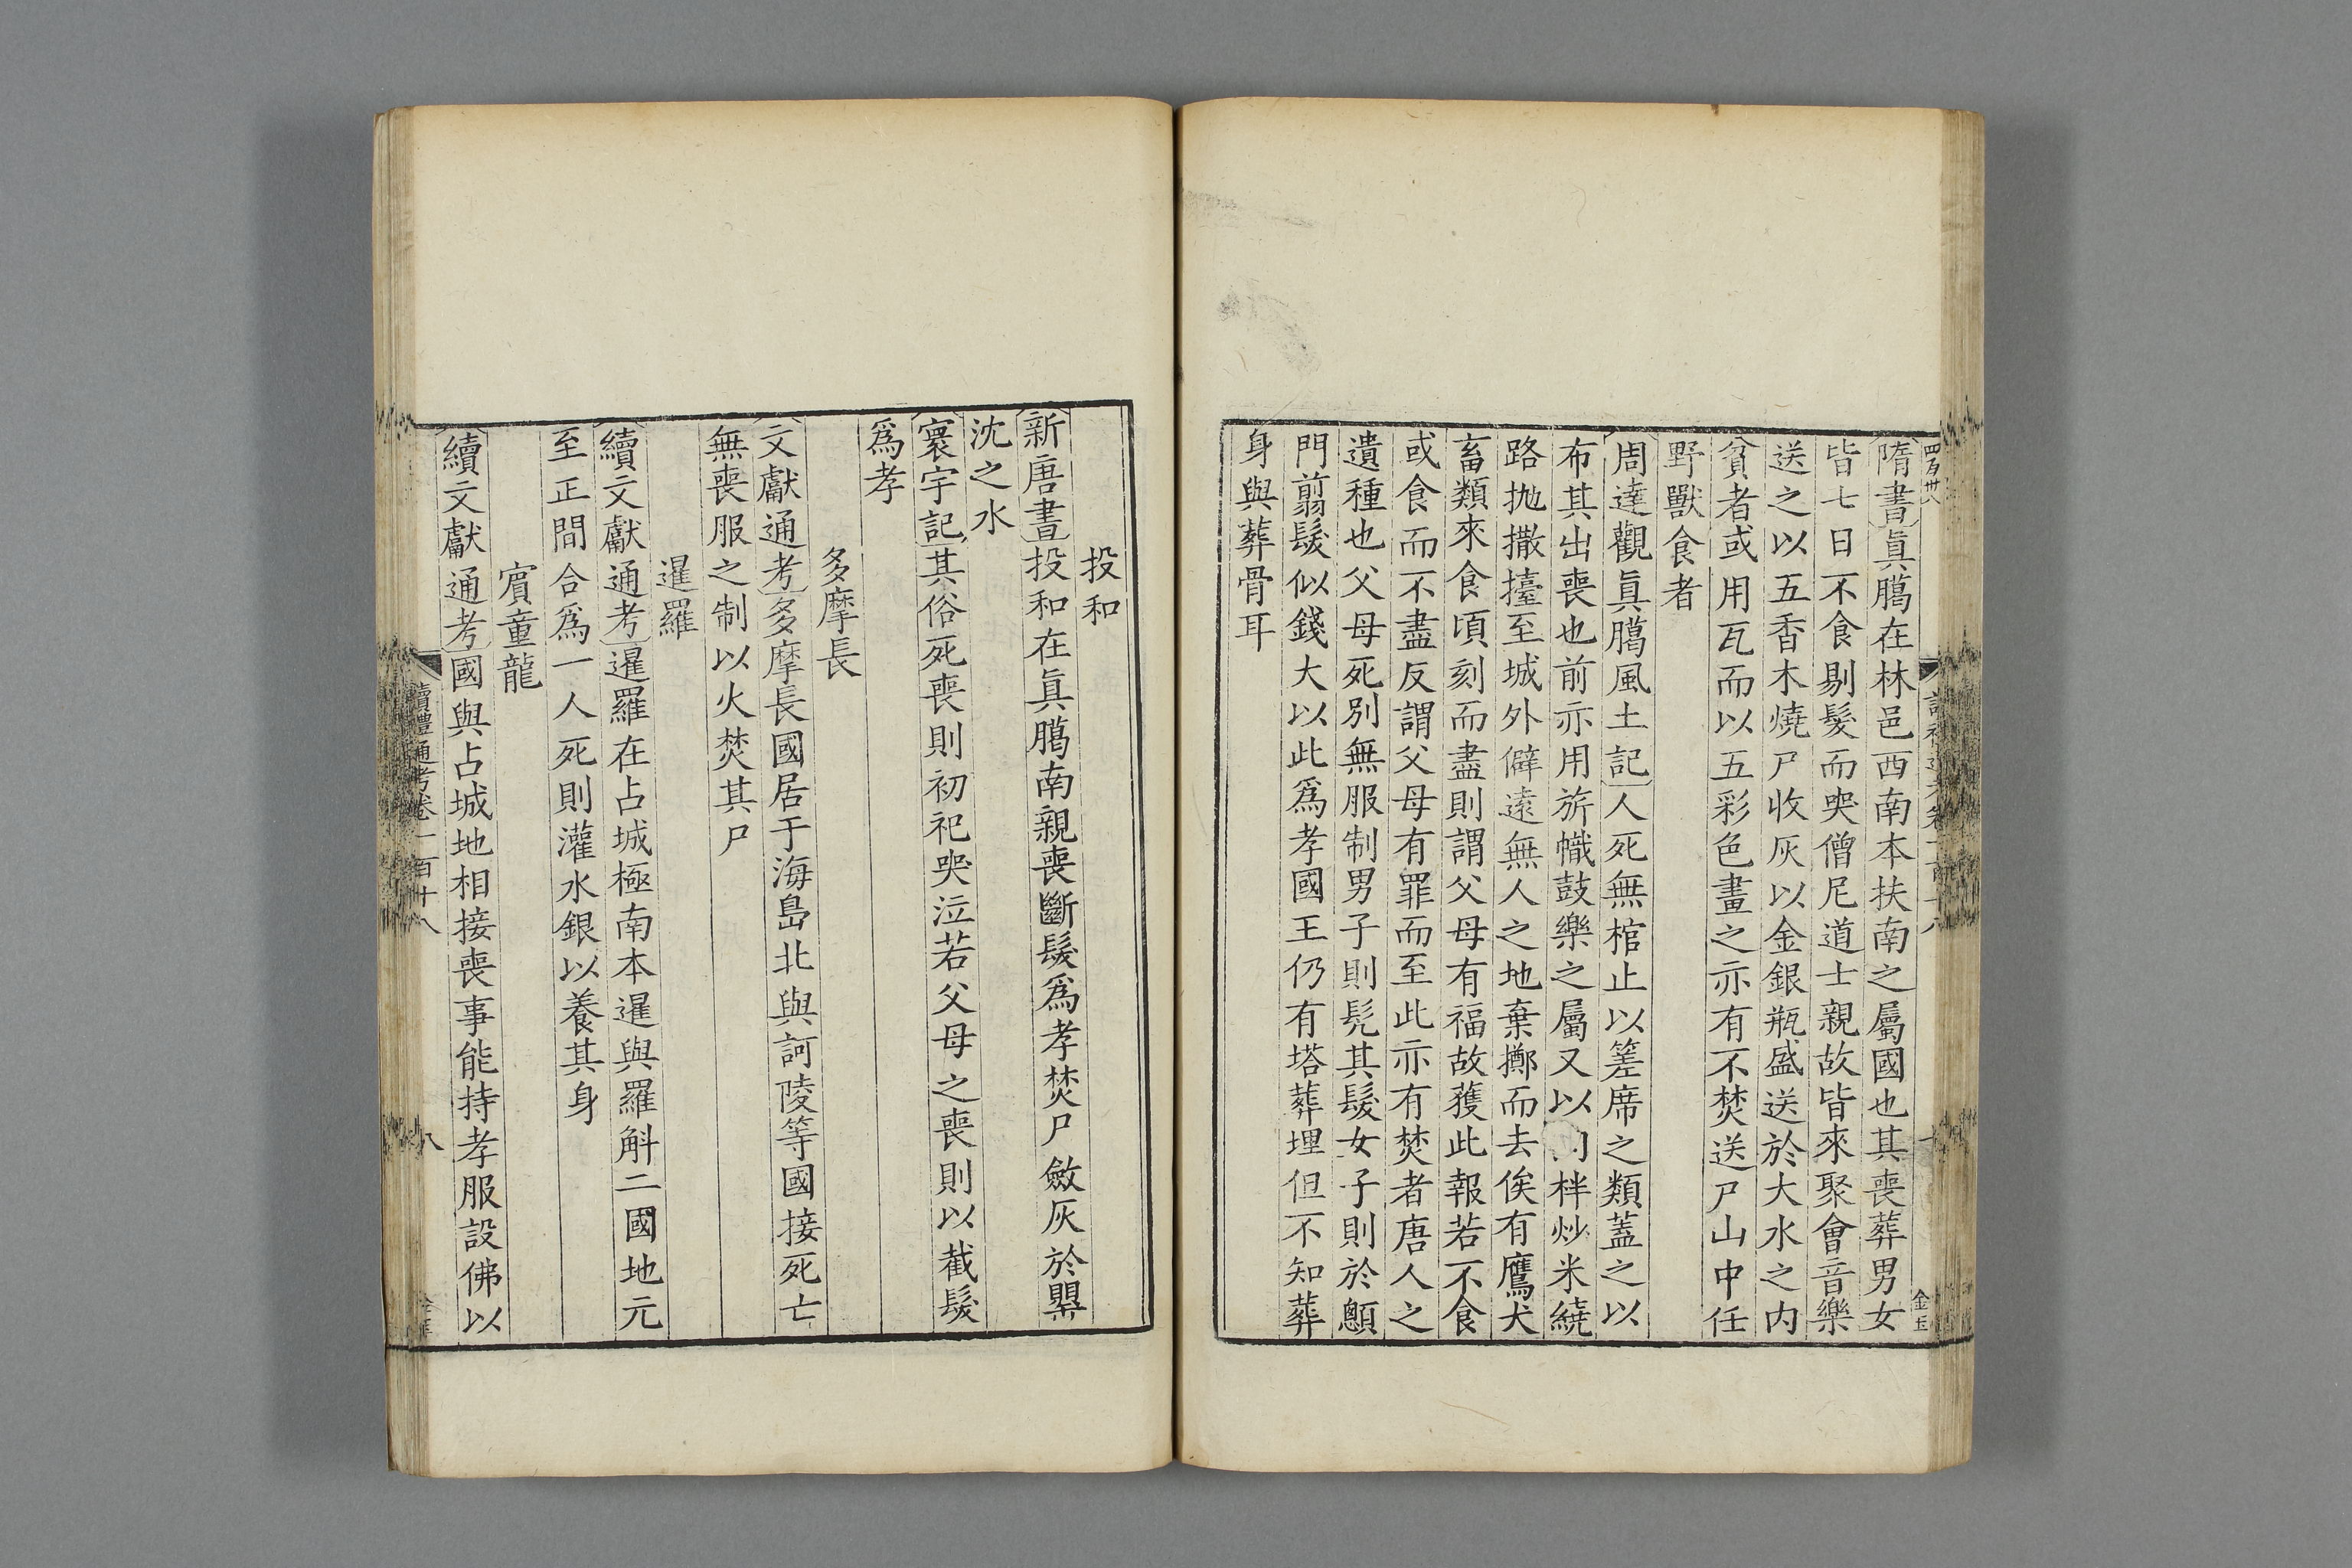 四百卅八
隋書眞臈在林邑西南本扶南之屬國也其喪葬男女
皆七日不食剔髮而哭僧尼道士親故皆來聚會音樂
送之以五香木燒尸收灰以金銀瓶盛送於大水之内
貧者或用瓦而以五彩色畫之亦有不焚送尸山中任
野獸食者
周達觀眞臈風土記人死無棺止以簺席之類蓋之以
布其出喪也前亦用旂幟鼓樂之屬又以柈炒米繞
路抛撒擡至城外僻遠無人之地棄擲而去俟有鷹犬
畜類來食頃刻而盡則謂父母有福故獲此報若不食
或食而不盡反謂父母有罪而至此亦有焚者唐人之
遺種也父母死别無服制男子則髠其髮女子則於顖
門翦髮似錢大以此爲孝國王仍有塔葬埋但不知葬
身與葬骨耳
投和
新唐書投和在眞臈南親喪斷髮爲孝焚尸斂灰於罌
沈之水
寰宇記其俗死喪則初祀哭泣若父母之喪則以截髮
爲孝
多摩長
文獻通考多摩長國居于海島北與訶陵等國接死亡
無喪服之制以火焚其尸
暹羅
續文獻通考暹羅在占城極南本暹與羅斛二國地元
至正間合爲一人死則灌水銀以養其身
賓童龍
續文獻通考國與占城地相接喪事能持孝服設佛以
讀禮通考卷一百十八
八